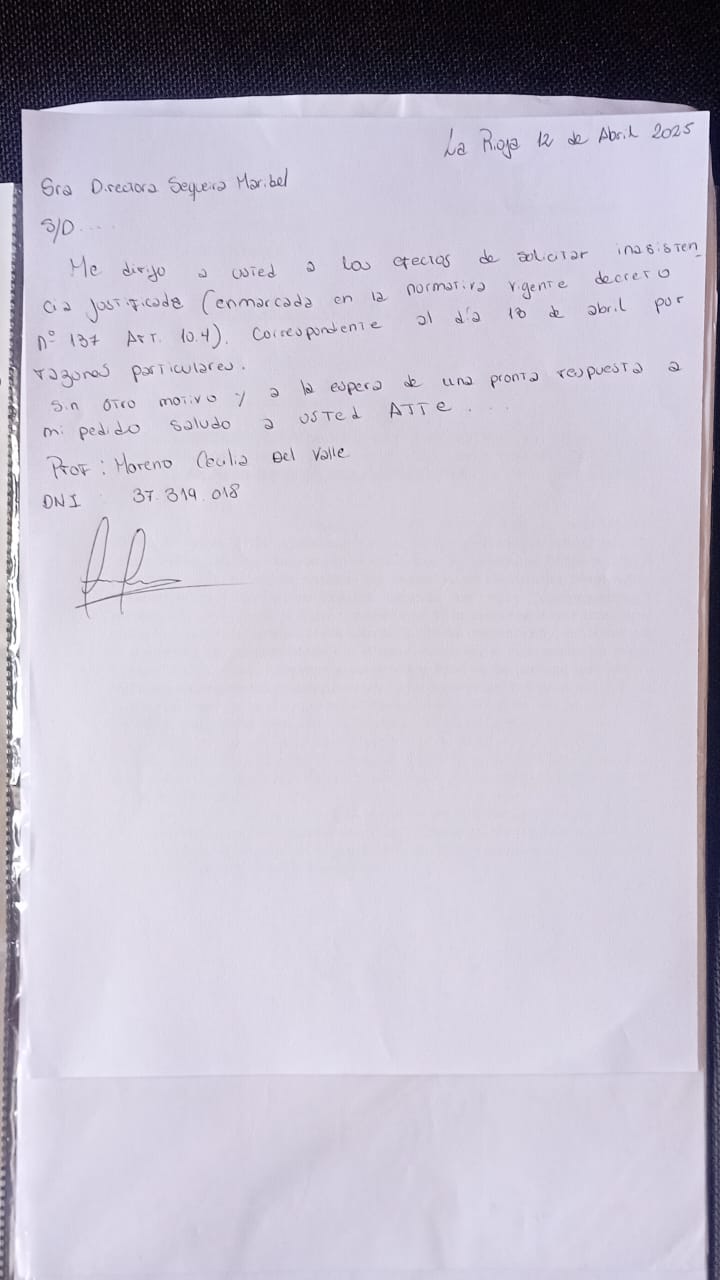 La Rioja 12 de Abril 2025
Sra Directora Sequeira Maribel
S/D....
Me dirijo a usted a los efectos de solicitar inasisten
cia justificada (enmarcada en la normativa vigente decreto
nº 137 Art. 10.4). Correspondente al día 18 de abril por
razones particulares.
Sin otro motivo y a la espera de una pronta respuesta a
mi pedido saludo a usted ATTE....
Prof: Moreno Cecilia Del Valle
DNI 37.319.018